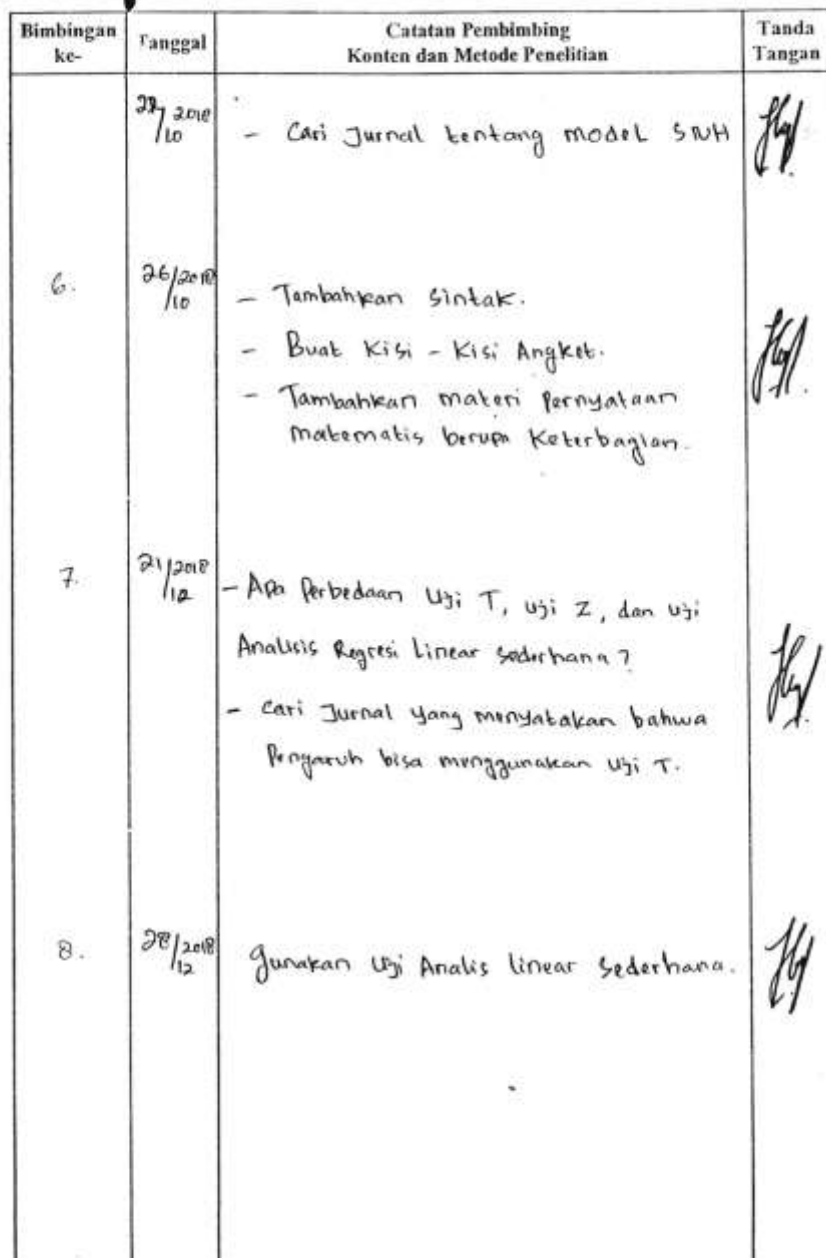 Bimbingan ke-
Tanggal
Catatan Pembimbing
Konten dan Metode Penelitian
Tanda Tangan
2018/10
- Cari Jurnal tentang model SNH
6.
26/2018/10
- Tambahkan Sintak.
- Buat Kisi - Kisi Angket.
- Tambahkan materi Pernyataan
matematis berupa Keterbagian.
7.
21/2018/12
- Apa Perbedaan Uji T, Uji Z, dan Uji
Analisis Regresi Linear Sederhana?
- Cari Jurnal yang menyatakan bahwa
Pengaruh bisa menggunakan Uji T.
8.
28/2018/12
Gunakan Uji Analis linear Sederhana.